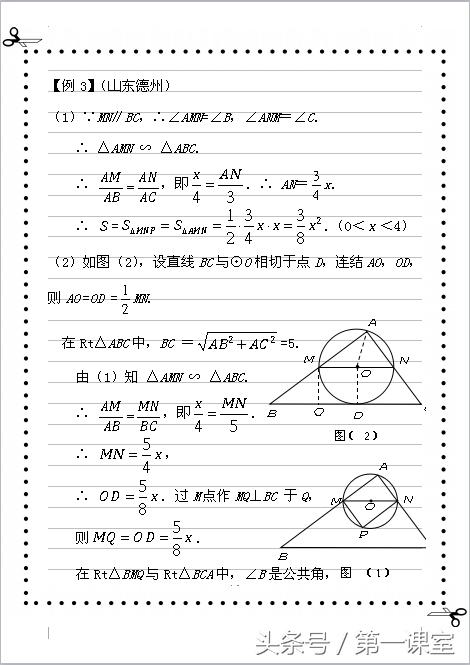 【例 3】(山东德州)
(1) ∵MN∥BC,∴∠AMN=∠B,∠ANM=∠C.
∴ △AMN ∽ △ABC.
∴ AM/AB=AN/AC,即x/4=AN/3. ∴ AN=3/4 x.
∴ S=S△MNP=S△AMN=1/2·3/4 x·x=3/8 x². (0<x<4)
(2) 如图 (2),设直线 BC 与⊙O 相切于点 D,连结 AO,OD,
则 AO=OD=1/2 MN.
在 Rt△ABC 中,BC=√(AB²+AC²)=5.
由 (1) 知 △AMN ∽ △ABC.
∴ AM/AB=MN/BC,即x/4=MN/5.
∴ MN=5/4 x,
∴ OD=5/8 x. 过 M 点作 MQ⊥BC 于 Q,
则 MQ=OD=5/8 x.
在 Rt△BMQ 与 Rt△BCA 中,∠B 是公共角,
A
M
N
O
B
Q
D
图( 2)
A
M
N
O
P
B
图 (1)
头条号 / 第一课室